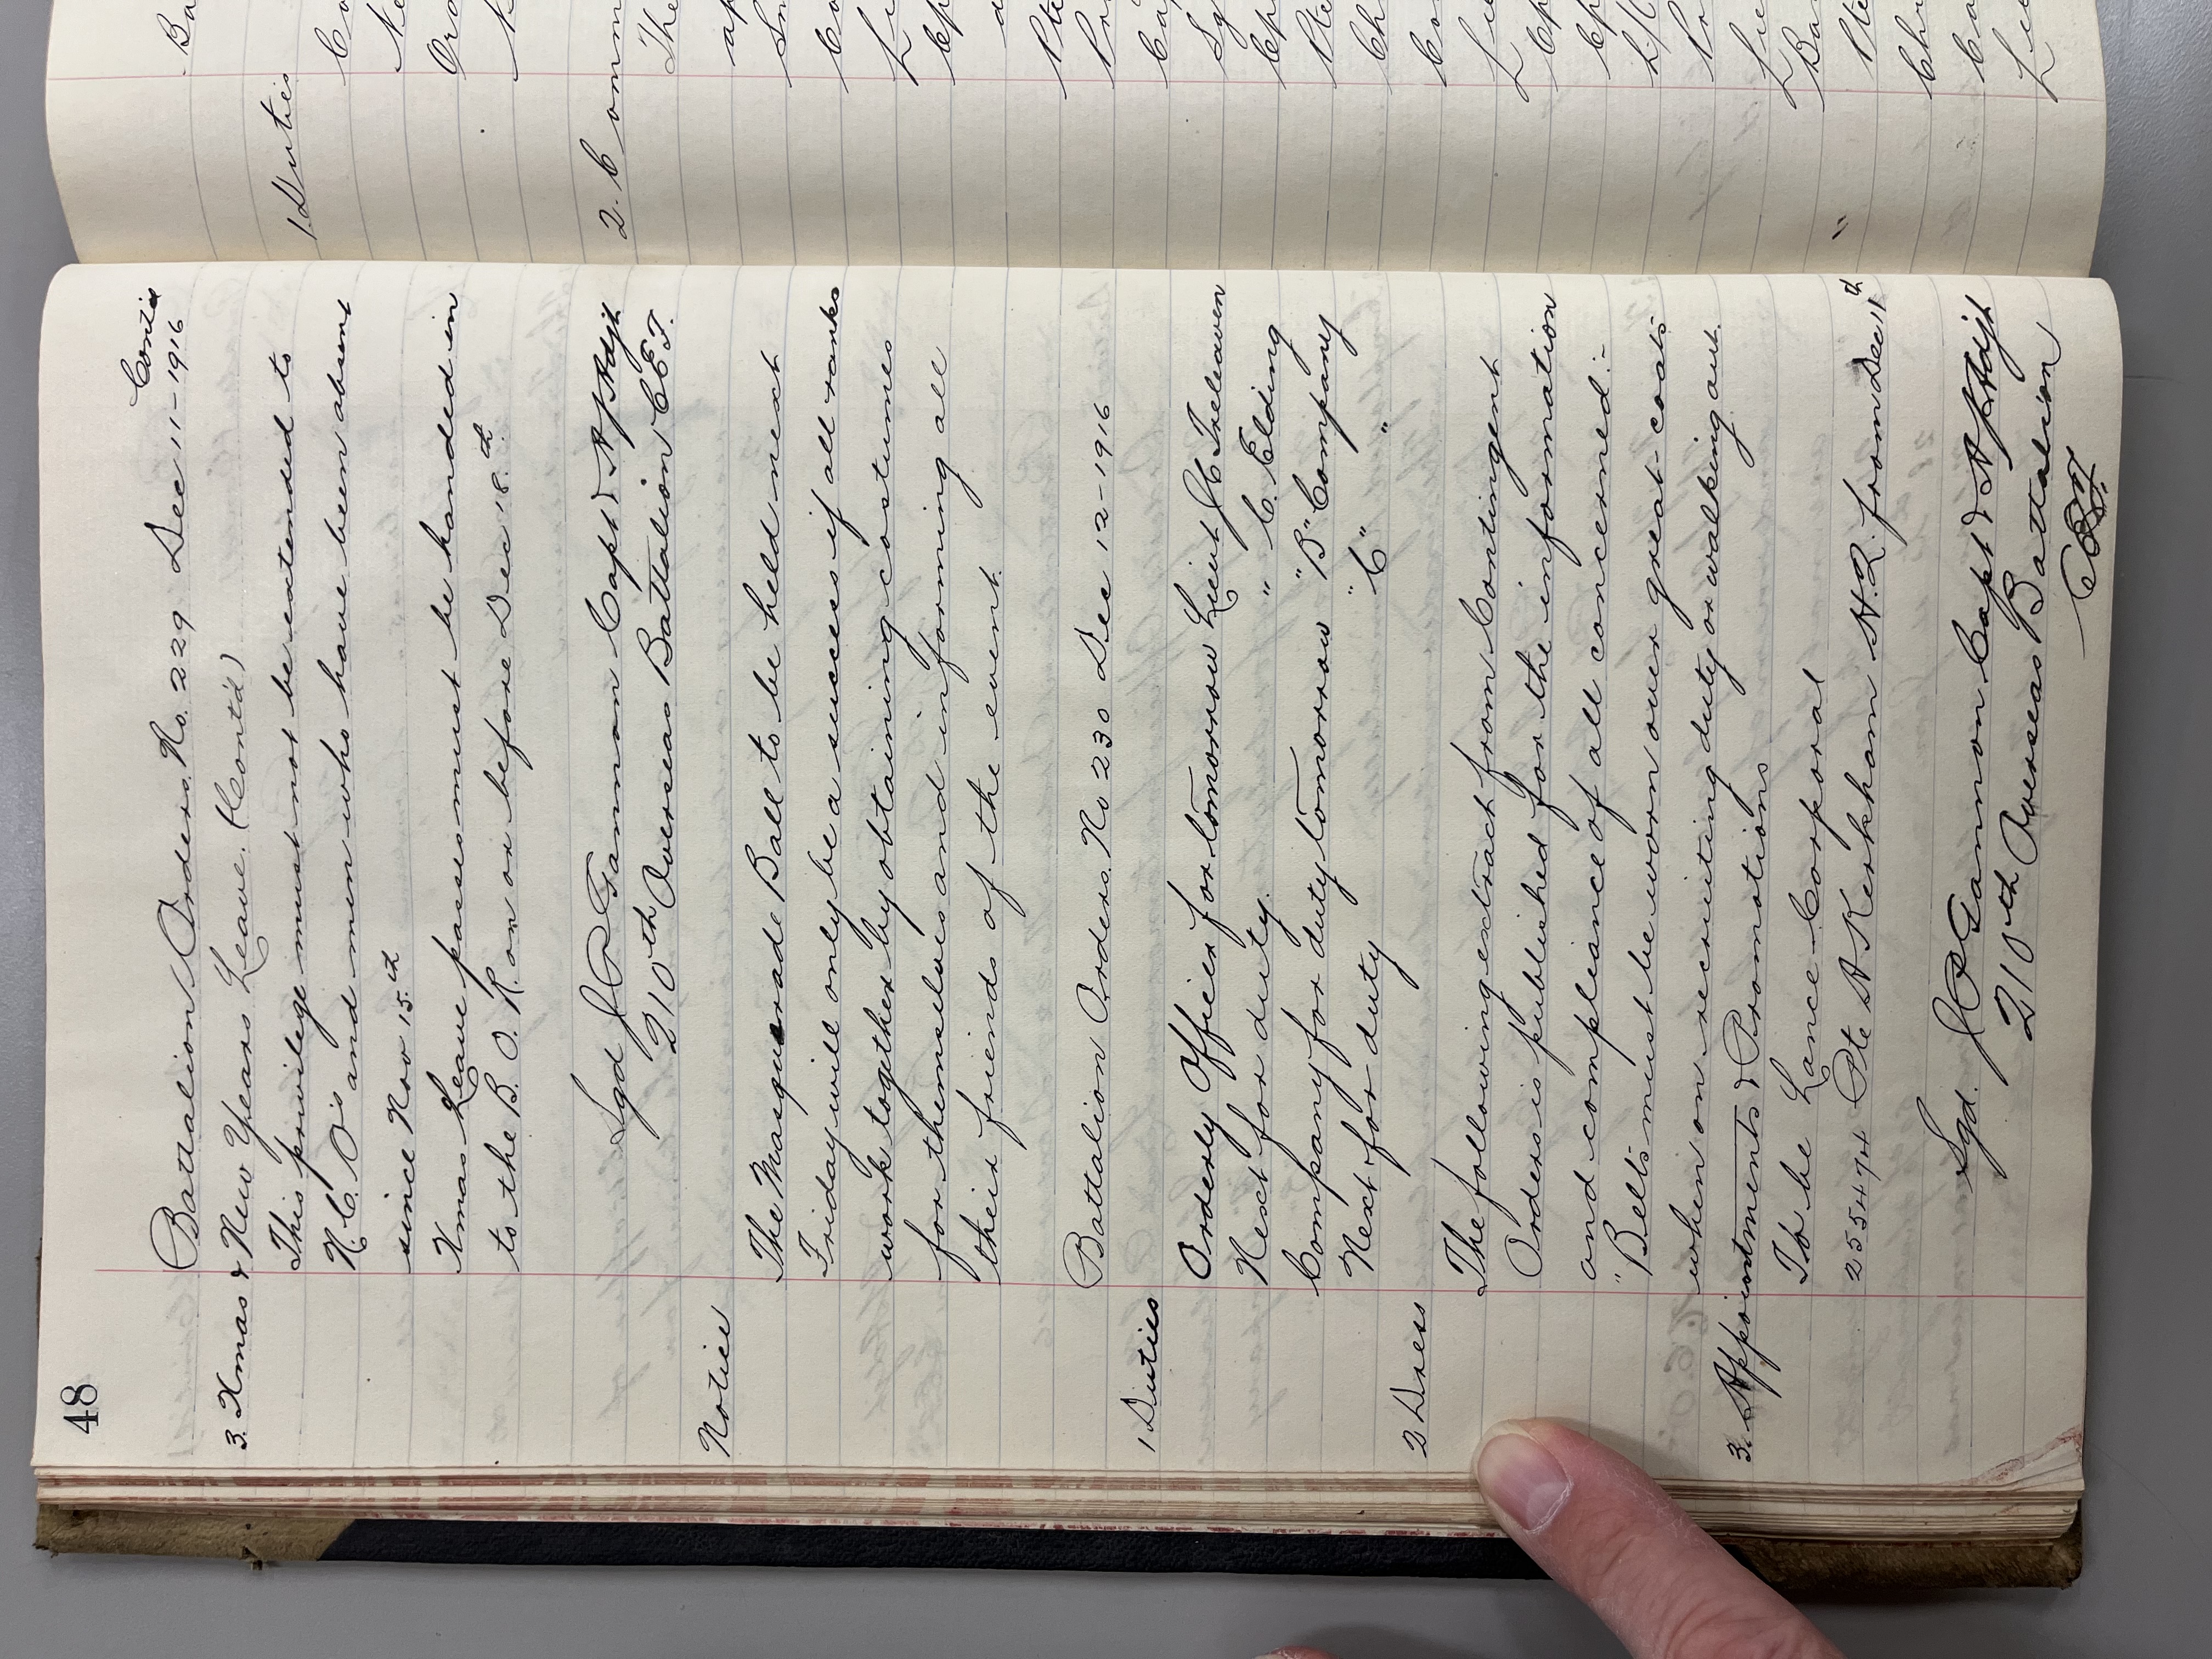 48
Contd
Battalion Orders. No. 229 Dec 11-1916
3. Xmas & New Years Leave. (Cont'd)
This privilege must not be extended to
N.C.O's and men who have been absent
since Nov 15.th
Xmas Leave passes must be handed in
to the B.O.R. on or before Dec 18.th
Sgd J P Gammon Capt & A/Adjt
210th Overseas Battalion C.E.F.
Notice
The Masquerade Ball to be held next
Friday will only be a success if all ranks
work together by obtaining costumes
for themselves and informing all
their friends of the event.
Battalion Orders. No 230 Dec 12-1916
1 Duties
Orderly Officer for tomorrow Lieut J C Treleaven
Next for duty. " C. Elding
Company for duty tomorrow "B" Company
Next for duty "C" "
2 Dress
The following extract from Contingent
Orders is published for the information
and compliance of all concerned:-
"Belts must be worn over great-coats
when on recruiting duty or walking out.
3. Appointments & Promotions
To be Lance-Corporal
255474 Pte A Kerkham H.Q. from Dec 11th
Sgd. J P Gammon Capt & A/Adjt
210th Overseas Battalion
CEF.
Ba
1 Duties
Co
Ne
Ord
N
2. Comm
The
ap
Sm
Co
L
Cp
a
Pte
Pro
Ca
Sg
Cp
Pte
Ch
Co
Lie
Cp
Cp
L/C
Pr
Lie
Ba
"
Pte
Chr
Ca
Lie